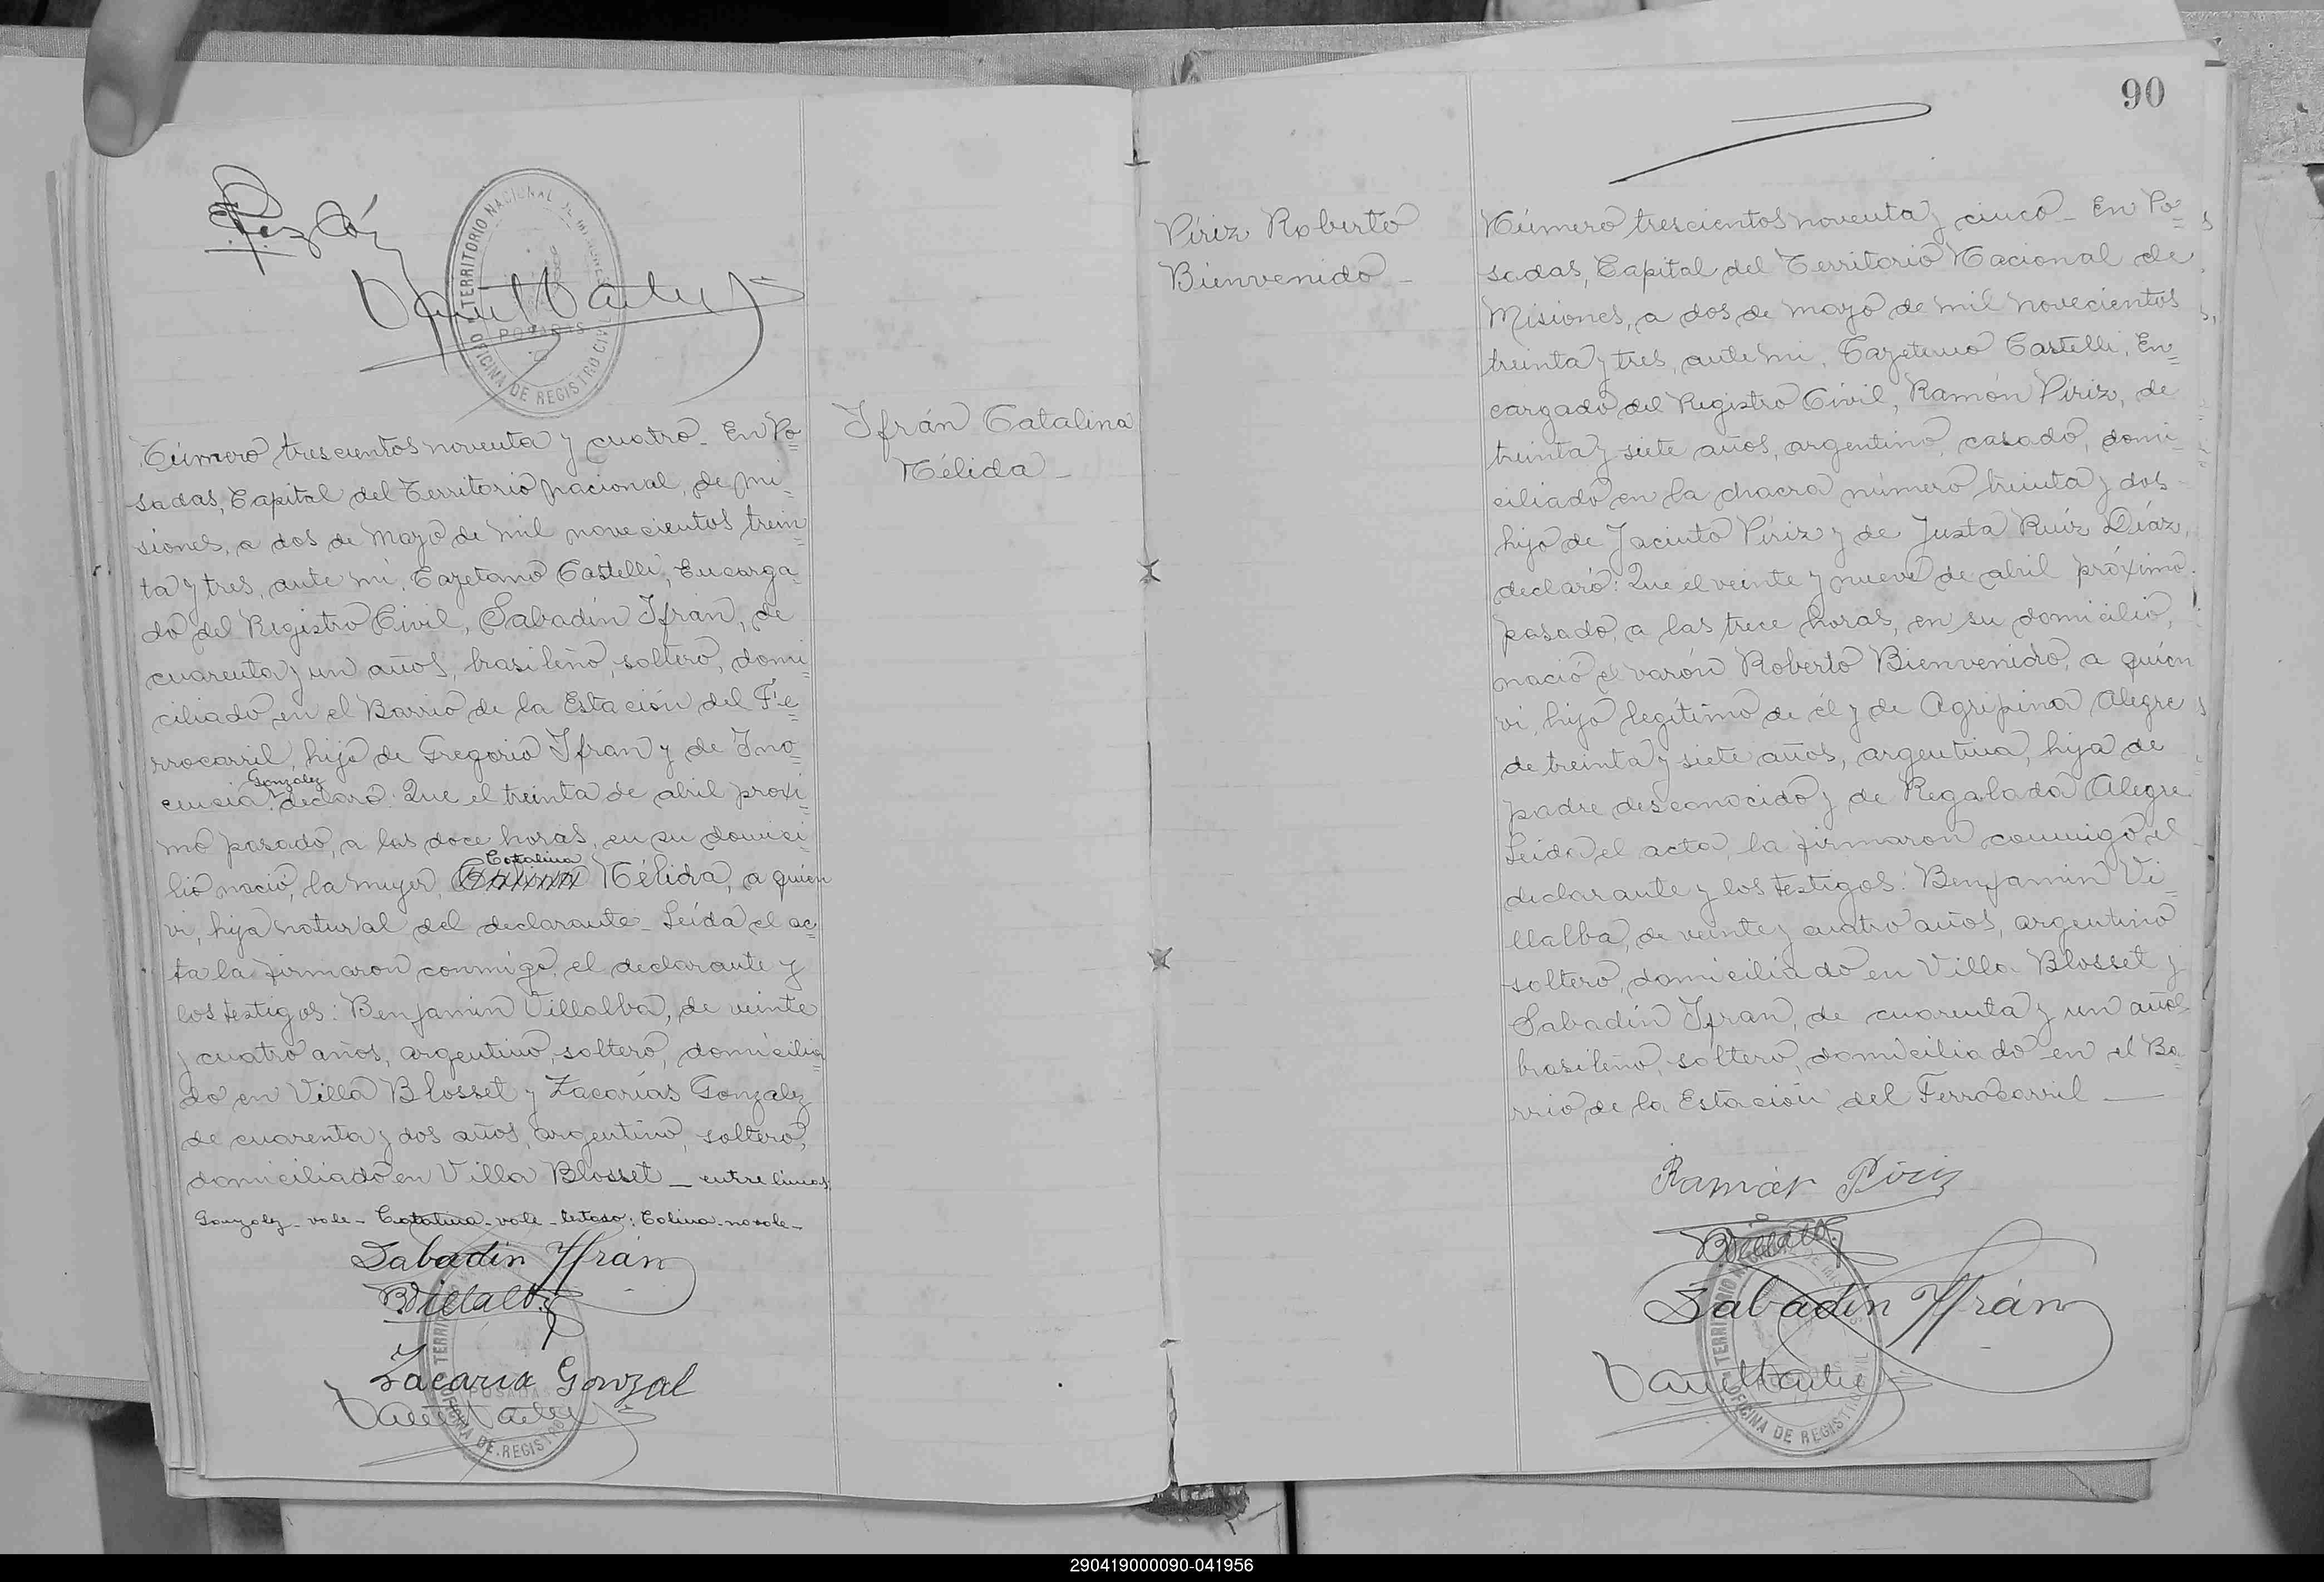 TERRITORIO NACIONAL DE MISIONES
POSADAS
OFICINA DE REGISTRO CIVIL
Ifrán Catalina
Nélida _
Número trescientos noventa y cuatro _ En Po=
sadas, Capital del Territorio nacional, de Mi=
siones, a dos de Mayo de mil novecientos trein=
ta y tres, ante mi, Cayetano Castelli, Encarga=
do del Registro Civil, Sabadín Ifrán, de
cuarenta y un años, brasileño, soltero, domi=
ciliado en el Barrio de la Estación del Fe=
rrocarril, hijo de Gregorio Ifran y de Ino=
Gonzalez
cencia. declaró: Que el treinta de abril proxi=
mo pasado, a las doce horas, en su domici=
Catalina
lio nació, la mujer, Nélida, a quien
vi, hija natural del declarante _ Leída el ac=
ta la firmaron conmigo, el declarante y
los testigos: Benjamin Villalba, de veinte
y cuatro años, argentino, soltero, domicilia=
do en Villa Blosset y Zacarías Gonzalez
de cuarenta y dos años, argentino, soltero,
domiciliado en Villa Blosset _ entre lineas
Gonzalez - vale - Catalina - vale - testado: Colina - no vale -
Sabadín Ifrán
BVillalba
Zacaria Gonzal
TERRITORIO
POSADAS
OFICINA DE REGISTRO
90
Píriz Roberto
Bienvenido _
Número trescientos noventa y cinco _ En Po=
sadas, Capital del Territorio Nacional de
Misiones, a dos de mayo de mil novecientos
treinta y tres, ante mi, Cayetano Castelli, En=
cargado del Registro Civil, Ramón Píriz, de
treinta y siete años, argentino, casado, domi=
ciliado en la chacra número treinta y dos
hijo de Jacinto Píriz y de Justa Ruíz Díaz,
declaró: Que el veinte y nueve de abril próximo
pasado, a las trece horas, en su domicilio,
nació el varón Roberto Bienvenido, a quien
vi, hijo legítimo de él y de Agripina Alegre
de treinta y siete años, argentina, hija de
padre desconocido y de Regalada Alegre
Leida el acta, la firmaron conmigo el
declarante y los testigos: Benjamin Vi=
llalba, de veinte y cuatro años, argentino
soltero, domiciliado en Villa Blosset y
Sabadín Ifran, de cuarenta y un años
brasileño, soltero, domiciliado en el Ba=
rrio de la Estación del Ferrocarril _
Ramón Píriz
BVillalba
Sabadín Ifrán
TERRITORIO
OFICINA DE REGISTRO CIVIL
290419000090-041956